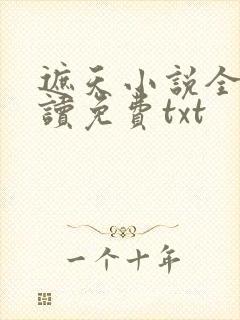 遮天小説全
讀免費txt
一个十年